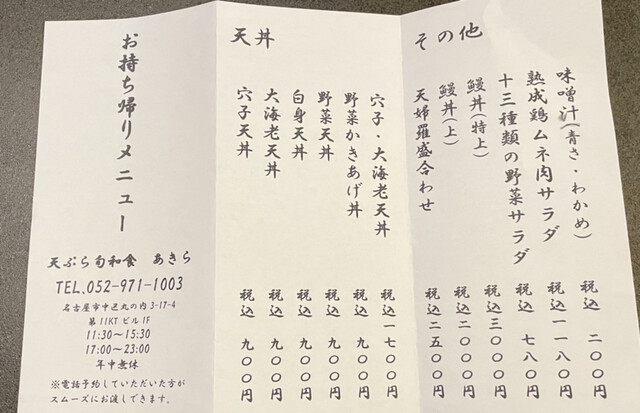 お持ち帰りメニュー
天ぷら旬和食 あきら
TEL.052-971-1003
名古屋市中区丸の内3-17-4
第11KTビル1F
11:30～15:30
17:00～23:00
年中無休
※電話予約していただいた方が
スムーズにお渡しできます。
天丼
穴子・大海老天丼 税込一七〇〇円
野菜かきあげ丼 税込九〇〇円
野菜天丼 税込九〇〇円
白身天丼 税込九〇〇円
大海老天丼 税込九〇〇円
穴子天丼 税込九〇〇円
その他
味噌汁(青さ・わかめ) 税込二〇〇円
熟成鶏ムネ肉サラダ 税込一一八〇円
十三種類の野菜サラダ 税込七八〇円
鰻丼(特上) 税込三〇〇〇円
鰻丼(上) 税込二〇〇〇円
天婦羅盛合わせ 税込二五〇〇円